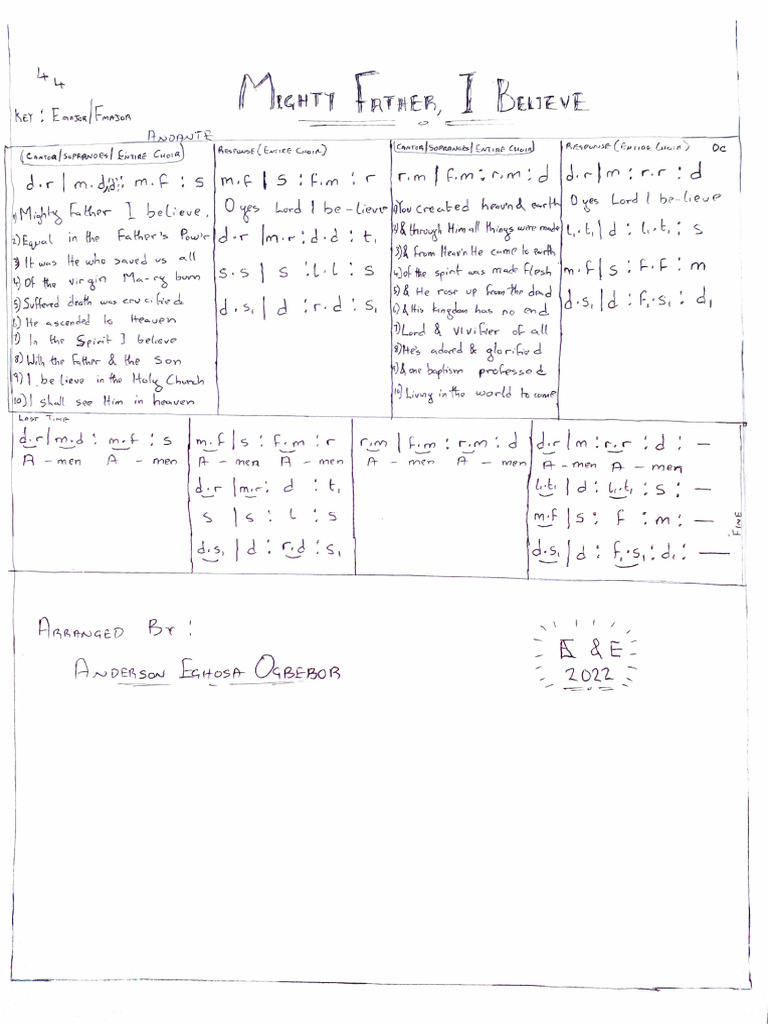 4
4
MIGHTY FATHER, I BELIEVE
KEY: E MAJOR/F MAJOR
ANDANTE
(CANTOR/SOPRANOES/ENTIRE CHOIR)
d.r | m.d : m.f : s
1) Mighty Father I believe,
2) Equal in the Father's Pow'r
3) It was He who saved us all
4) Of the virgin Ma-ry born
5) Suffered death was crucified
6) He ascended to Heaven
7) In the Spirit I believe
8) With the Father & the Son
9) I be lieve in the Holy Church
10) I shall see Him in heaven
RESPONSE (ENTIRE CHOIR)
m.f | s : f.m : r
O yes Lord I be-lieve
d.r | m.r : d.d : t₁
s.s | s : l.l : s
d.s₁ | d : r.d : s₁
(CANTOR/SOPRANOES/ENTIRE CHOIR)
r.m | f.m : r.m : d
1) You created heav'n & earth
2) & through Him all things were made
3) & from Heav'n He came to earth
4) of the spirit was made flesh
5) & He rose up from the dead
6) & His kingdom has no end
7) Lord & vivifier of all
8) He's adored & glorified
9) & one baptism professed
10) Living in the world to come
RESPONSE (ENTIRE CHOIR) DC
d.r | m : r.r : d
O yes Lord I be-lieve
l₁.t₁ | d : l₁.t₁ : s
m.f | s : f.f : m
d.s₁ | d : f₁.s₁ : d₁
LAST TIME
d.r | m.d : m.f : s
A - men A - men
m.f | s : f.m : r
A - men A - men
d.r | m.r : d : t₁
s | s : l : s
d.s₁ | d : r.d : s₁
r.m | f.m : r.m : d
A - men A - men
d.r | m : r.r : d : —
A - men A - men
l₁.t₁ | d : l₁.t₁ : s : —
m.f | s : f : m : —
d.s₁ | d : f₁.s₁ : d₁ : —
FINE
ARRANGED BY :
ANDERSON EGHOSA OGBEBOR
& E
2022